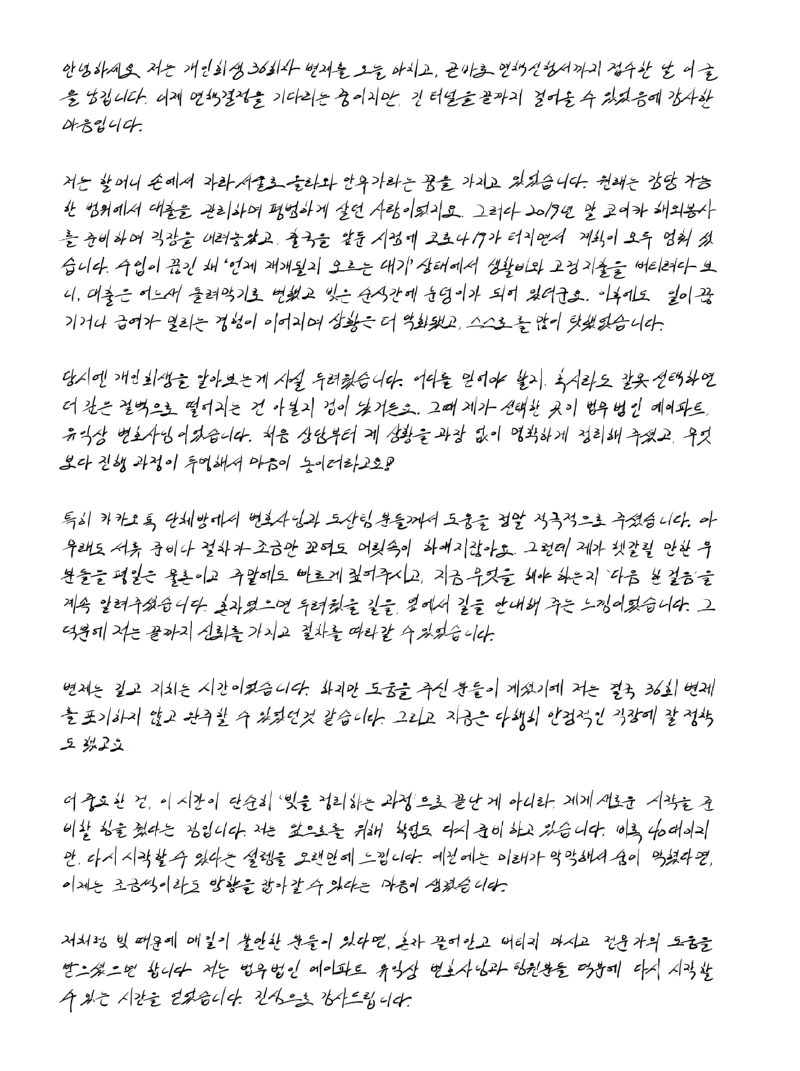 안녕하세요 저는 개인회생 36회차 변제를 오늘 마치고, 곧바로 면책신청서까지 접수한 날 이 글
을 남깁니다. 이제 면책결정을 기다리는 중이지만, 긴 터널을 끝까지 걸어올 수 있었음에 감사한
마음입니다.
저는 할머니 손에서 자라 서울로 올라와 안무가라는 꿈을 가지고 있었습니다. 원래는 감당 가능
한 범위에서 대출을 관리하며 평범하게 살던 사람이었지요. 그러다 2019년 말 코이카 해외봉사
를 준비하며 직장을 내려놓았고, 출국을 앞둔 시점에 코로나19가 터지면서 계획이 모두 멈춰 섰
습니다. 수입이 끊긴 채 '언제 재개될지 모르는 대기' 상태에서 생활비와 고정지출을 버티려다 보
니, 대출은 어느새 돌려막기로 변했고 빚은 순식간에 눈덩이가 되어 있더군요. 이후에도 일이 끊
기거나 급여가 밀리는 경험이 이어지며 상황은 더 악화됐고, 스스로를 많이 탓했었습니다.
당시엔 개인회생을 알아보는게 사실 두려웠습니다. 어디를 믿어야 할지, 혹시라도 잘못 선택하면
더 깊은 절벽으로 떨어지는 건 아닐지 겁이 났거든요. 그때 제가 선택한 곳이 법무법인 에이파트,
유익상 변호사님이었습니다. 처음 상담부터 제 상황을 과장 없이 명확하게 정리해 주셨고, 무엇
보다 진행 과정이 투명해서 마음이 놓이더라고요!
특히 카카오톡 단체방에서 변호사님과 도산팀 분들께서 도움을 정말 적극적으로 주셨습니다. 아
무래도 서류 준비나 절차가 조금만 꼬여도 머릿속이 하얘지잖아요. 그런데 제가 헷갈릴 만한 부
분들을 평일은 물론이고 주말에도 빠르게 짚어주시고, 지금 무엇을 해야 하는지 '다음 한 걸음'을
계속 알려주셨습니다. 혼자였으면 두려웠을 길을, 옆에서 길을 안내해 주는 느낌이었습니다. 그
덕분에 저는 끝까지 신뢰를 가지고 절차를 따라갈 수 있었습니다.
변제는 길고 지치는 시간이었습니다. 하지만 도움을 주신 분들이 계셨기에 저는 결국 36회 변제
를 포기하지 않고 완주할 수 있었던것 같습니다. 그리고 지금은 다행히 안정적인 직장에 잘 정착
도 했고요.
더 중요한 건, 이 시간이 단순히 '빚을 정리하는 과정'으로 끝난 게 아니라, 제게 새로운 시작을 준
비할 힘을 줬다는 점입니다. 저는 앞으로를 위해 학업도 다시 준비하고 있습니다. 비록 40대이지
만, 다시 시작할 수 있다는 설렘을 오랜만에 느낍니다. 예전에는 미래가 막막해서 숨이 막혔다면,
이제는 조금씩이라도 방향을 잡아갈 수 있다는 마음이 생겼습니다.
저처럼 빚 때문에 매일이 불안한 분들이 있다면, 혼자 끌어안고 버티지 마시고 전문가의 도움을
받으셨으면 합니다. 저는 법무법인 에이파트 유익상 변호사님과 팀원분들 덕분에 다시 시작할
수 있는 시간을 얻었습니다. 진심으로 감사드립니다.